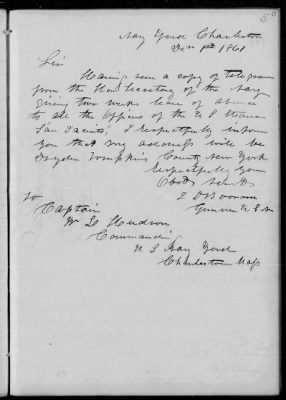 5
Navy Yard Charleston
Dec 1st 1861
Sir
Having seen a copy of Telegram
from the Hon Secretary of the Navy
giving two weeks leave of absence
to all the Officers of the U S Steamer
San Jacinto, I respectfully inform
you that my address will be
Dryden Tompkins County New York
Respectfully Your
Obedt Servt
Gunner U S N
To
Captain
Wm L Hudson
Commanding
U S Navy Yard
Charlestown Mass